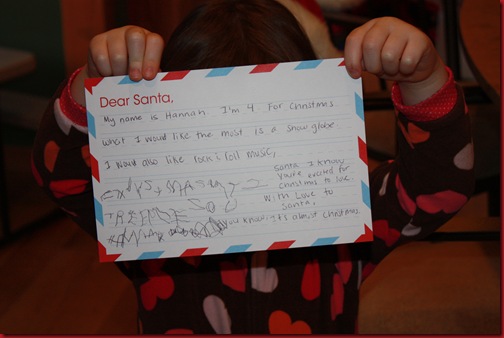 Dear Santa,
My name is Hannah. I'm 4. For Christmas
what I would like the most is a snow globe
I would also like rock i roll music,
Santa I know
you're excited for
Christmas to see.
With Love to
Santa.
You know it's almost Christmas.